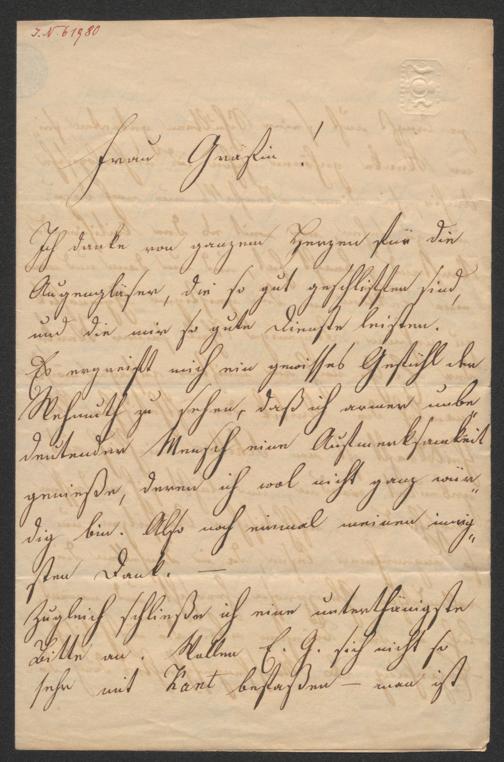 J.N. 61980
Frau Gräfin!
Ich danke von ganzem Herzen für die
Augengläser, die so gut geschliffen sind,
und die mir so gute Dienste leisten.
Es ergreift mich ein gewisses Gefühl der
Wehmuth zu sehen, daß ich armer unbe
deutender Mensch eine Aufmerksamkeit
genieße, deren ich wol nicht ganz wür„
dig bin. Also noch einmal meinen innig„
sten Dank. —
Zugleich schließe ich eine unterthänigste
Bitte an. Wollen E. G. sich nicht so
sehr mit Kant befaßen — man ist